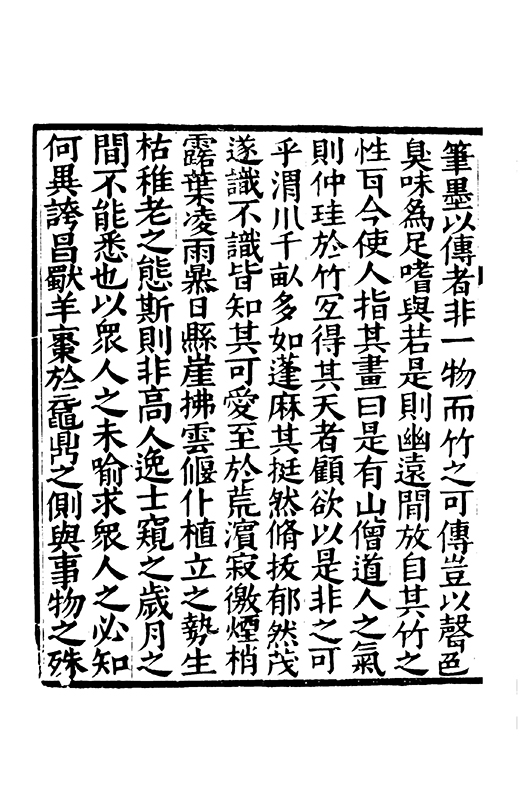 筆墨以傳者非一物而竹之可傳豈以聲色
臭味為足嗜與若是則幽遠閒放自其竹之
性耳今使人指其畫曰是有山僧道人之氣
則仲珪於竹室得其天者顧欲以是非之可
乎渭川千畝多如蓬麻其挺然脩拔郁然茂
遂識不識皆知其可愛至於荒濵寂徼煙梢
露葉凌雨暴日縣崖拂雲偃仆植立之勢生
枯稚老之態斯則非高人逸士窺之歲月之
間不能悉也以衆人之未喻求衆人之必知
何異誇昌歜羊棗於鼎之側與事物之殊